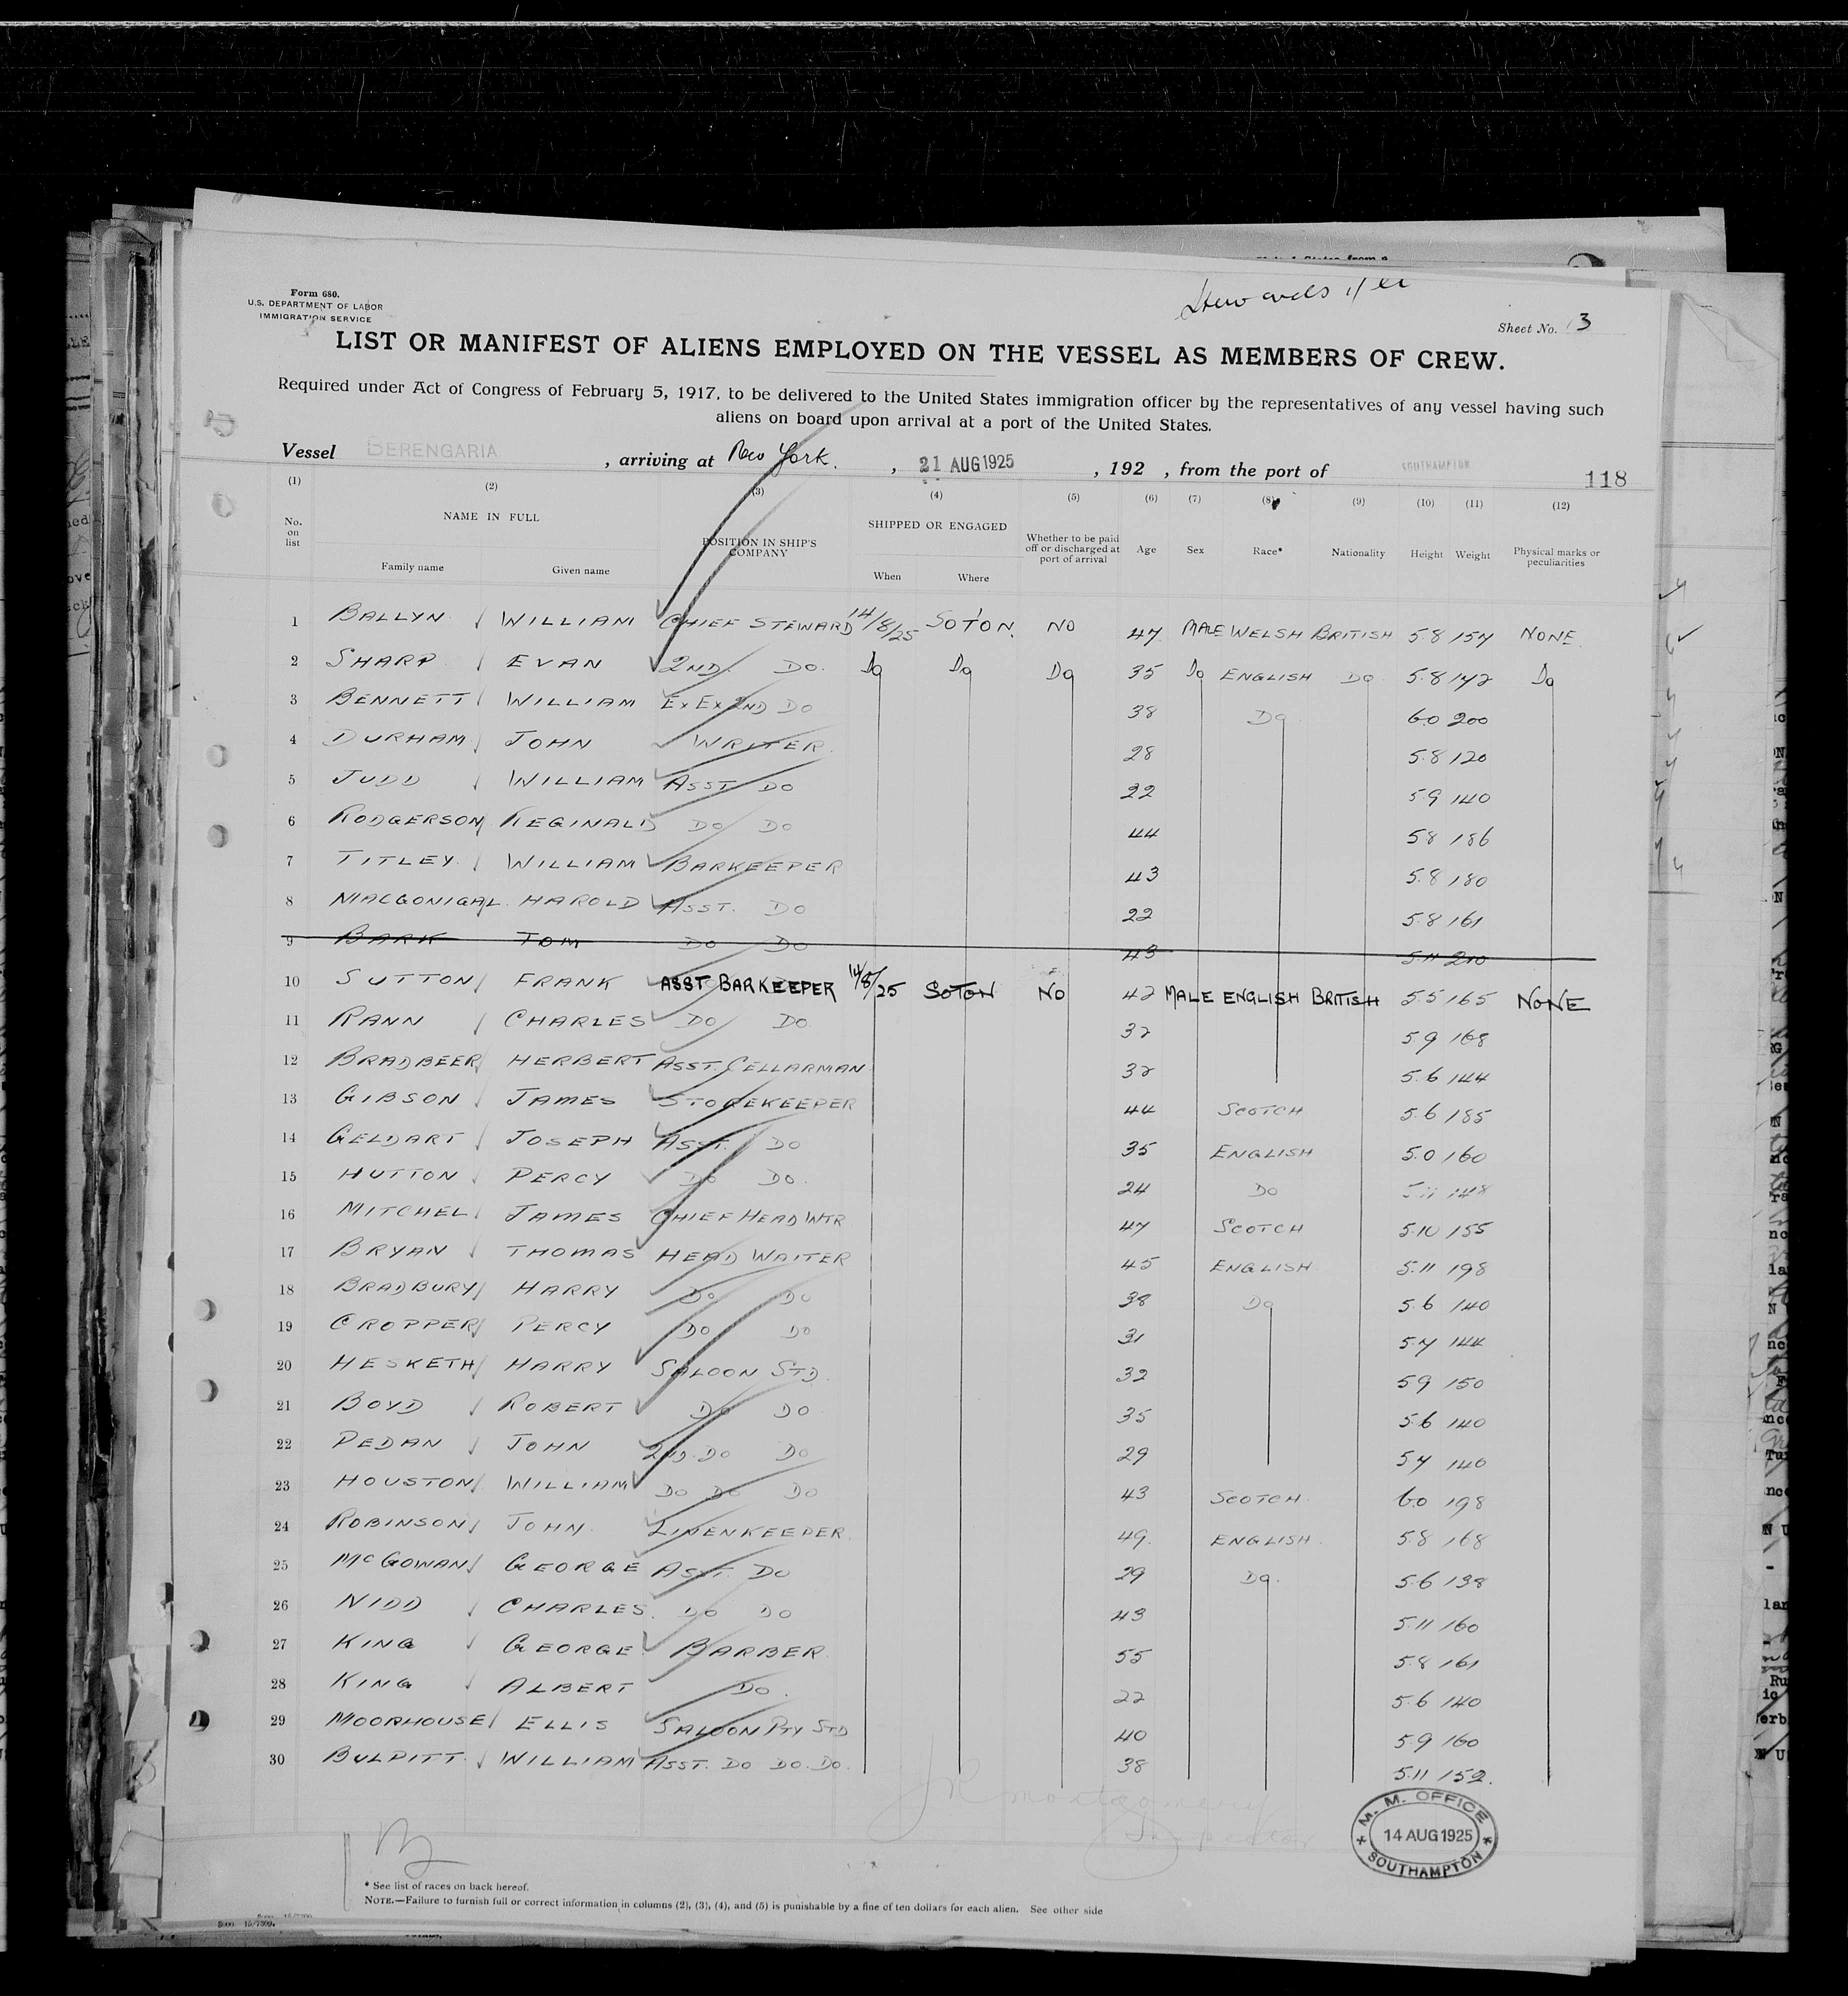 Form 680.
U.S. DEPARTMENT OF LABOR
IMMIGRATION SERVICE
Sheet No. 3
LIST OR MANIFEST OF ALIENS EMPLOYED ON THE VESSEL AS MEMBERS OF CREW.
Required under Act of Congress of February 5, 1917, to be delivered to the United States immigration officer by the representatives of any vessel having such
aliens on board upon arrival at a port of the United States.
Vessel BERENGARIA, arriving at New York., 21 AUG 1925, 192 , from the port of SOUTHAMPTON
118
(1) (2) (3) (4) (5) (6) (7) (8) (9) (10) (11) (12)
No. on list NAME IN FULL Family name Given name POSITION IN SHIP'S COMPANY SHIPPED OR ENGAGED When Where Whether to be paid off or discharged at port of arrival Age Sex Race* Nationality Height Weight Physical marks or peculiarities
1 BALLYN WILLIAM CHIEF STEWARD 14/8/25 SOTON. NO 47 MALE WELSH BRITISH 5.8 157 NONE
2 SHARP EVAN 2ND DO. Do Do Do 35 Do ENGLISH DO 5.8 142 Do
3 BENNETT WILLIAM Ex Ex 2ND DO 38 DO 6.0 200
4 DURHAM JOHN WRITER 28 5.8 120
5 JUDD WILLIAM ASST DO 22 5.9 140
6 RODGERSON REGINALD DO DO 44 5.8 186
7 TITLEY WILLIAM BARKEEPER 43 5.8 180
8 MACGONIGAL HAROLD ASST. DO 22 5.8 161
9 BARK TOM DO DO 43 5.11 210
10 SUTTON FRANK ASST BARKEEPER 14/8/25 SOTON NO 42 MALE ENGLISH BRITISH 5.5 165 NONE
11 RANN CHARLES DO DO 32 5.9 168
12 BRADBEER HERBERT ASST. CELLARMAN 32 5.6 144
13 GIBSON JAMES STOREKEEPER 44 SCOTCH 5.6 185
14 GELDART JOSEPH ASST. DO 35 ENGLISH 5.0 160
15 HUTTON PERCY DO DO. 24 DO 5.11 148
16 MITCHEL JAMES CHIEF HEAD WTR 47 SCOTCH 5.10 155
17 BRYAN THOMAS HEAD WAITER 45 ENGLISH 5.11 198
18 BRADBURY HARRY DO DO 38 DO 5.6 140
19 CROPPER PERCY DO DO 31 5.7 144
20 HESKETH HARRY SALOON STD. 32 5.9 150
21 BOYD ROBERT DO DO 35 5.6 140
22 PEDAN JOHN 2ND DO DO 29 5.7 140
23 HOUSTON WILLIAM DO DO DO 43 SCOTCH 6.0 198
24 ROBINSON JOHN LINENKEEPER. 49. ENGLISH 5.8 168
25 McGOWAN GEORGE ASST. DO 29 DO. 5.6 138
26 NIDD CHARLES. DO DO 43 5.11 160
27 KING GEORGE BARBER 55 5.8 161
28 KING ALBERT DO. 22 5.6 140
29 MOORHOUSE ELLIS SALOON PTY STD 40 5.9 160
30 BULPITT WILLIAM ASST. DO DO. DO. 38 5.11 152.
Montgomery
Inspector
M. M. OFFICE
14 AUG 1925
SOUTHAMPTON
* See list of races on back hereof.
NOTE.—Failure to furnish full or correct information in columns (2), (3), (4), and (5) is punishable by a fine of ten dollars for each alien. See other side